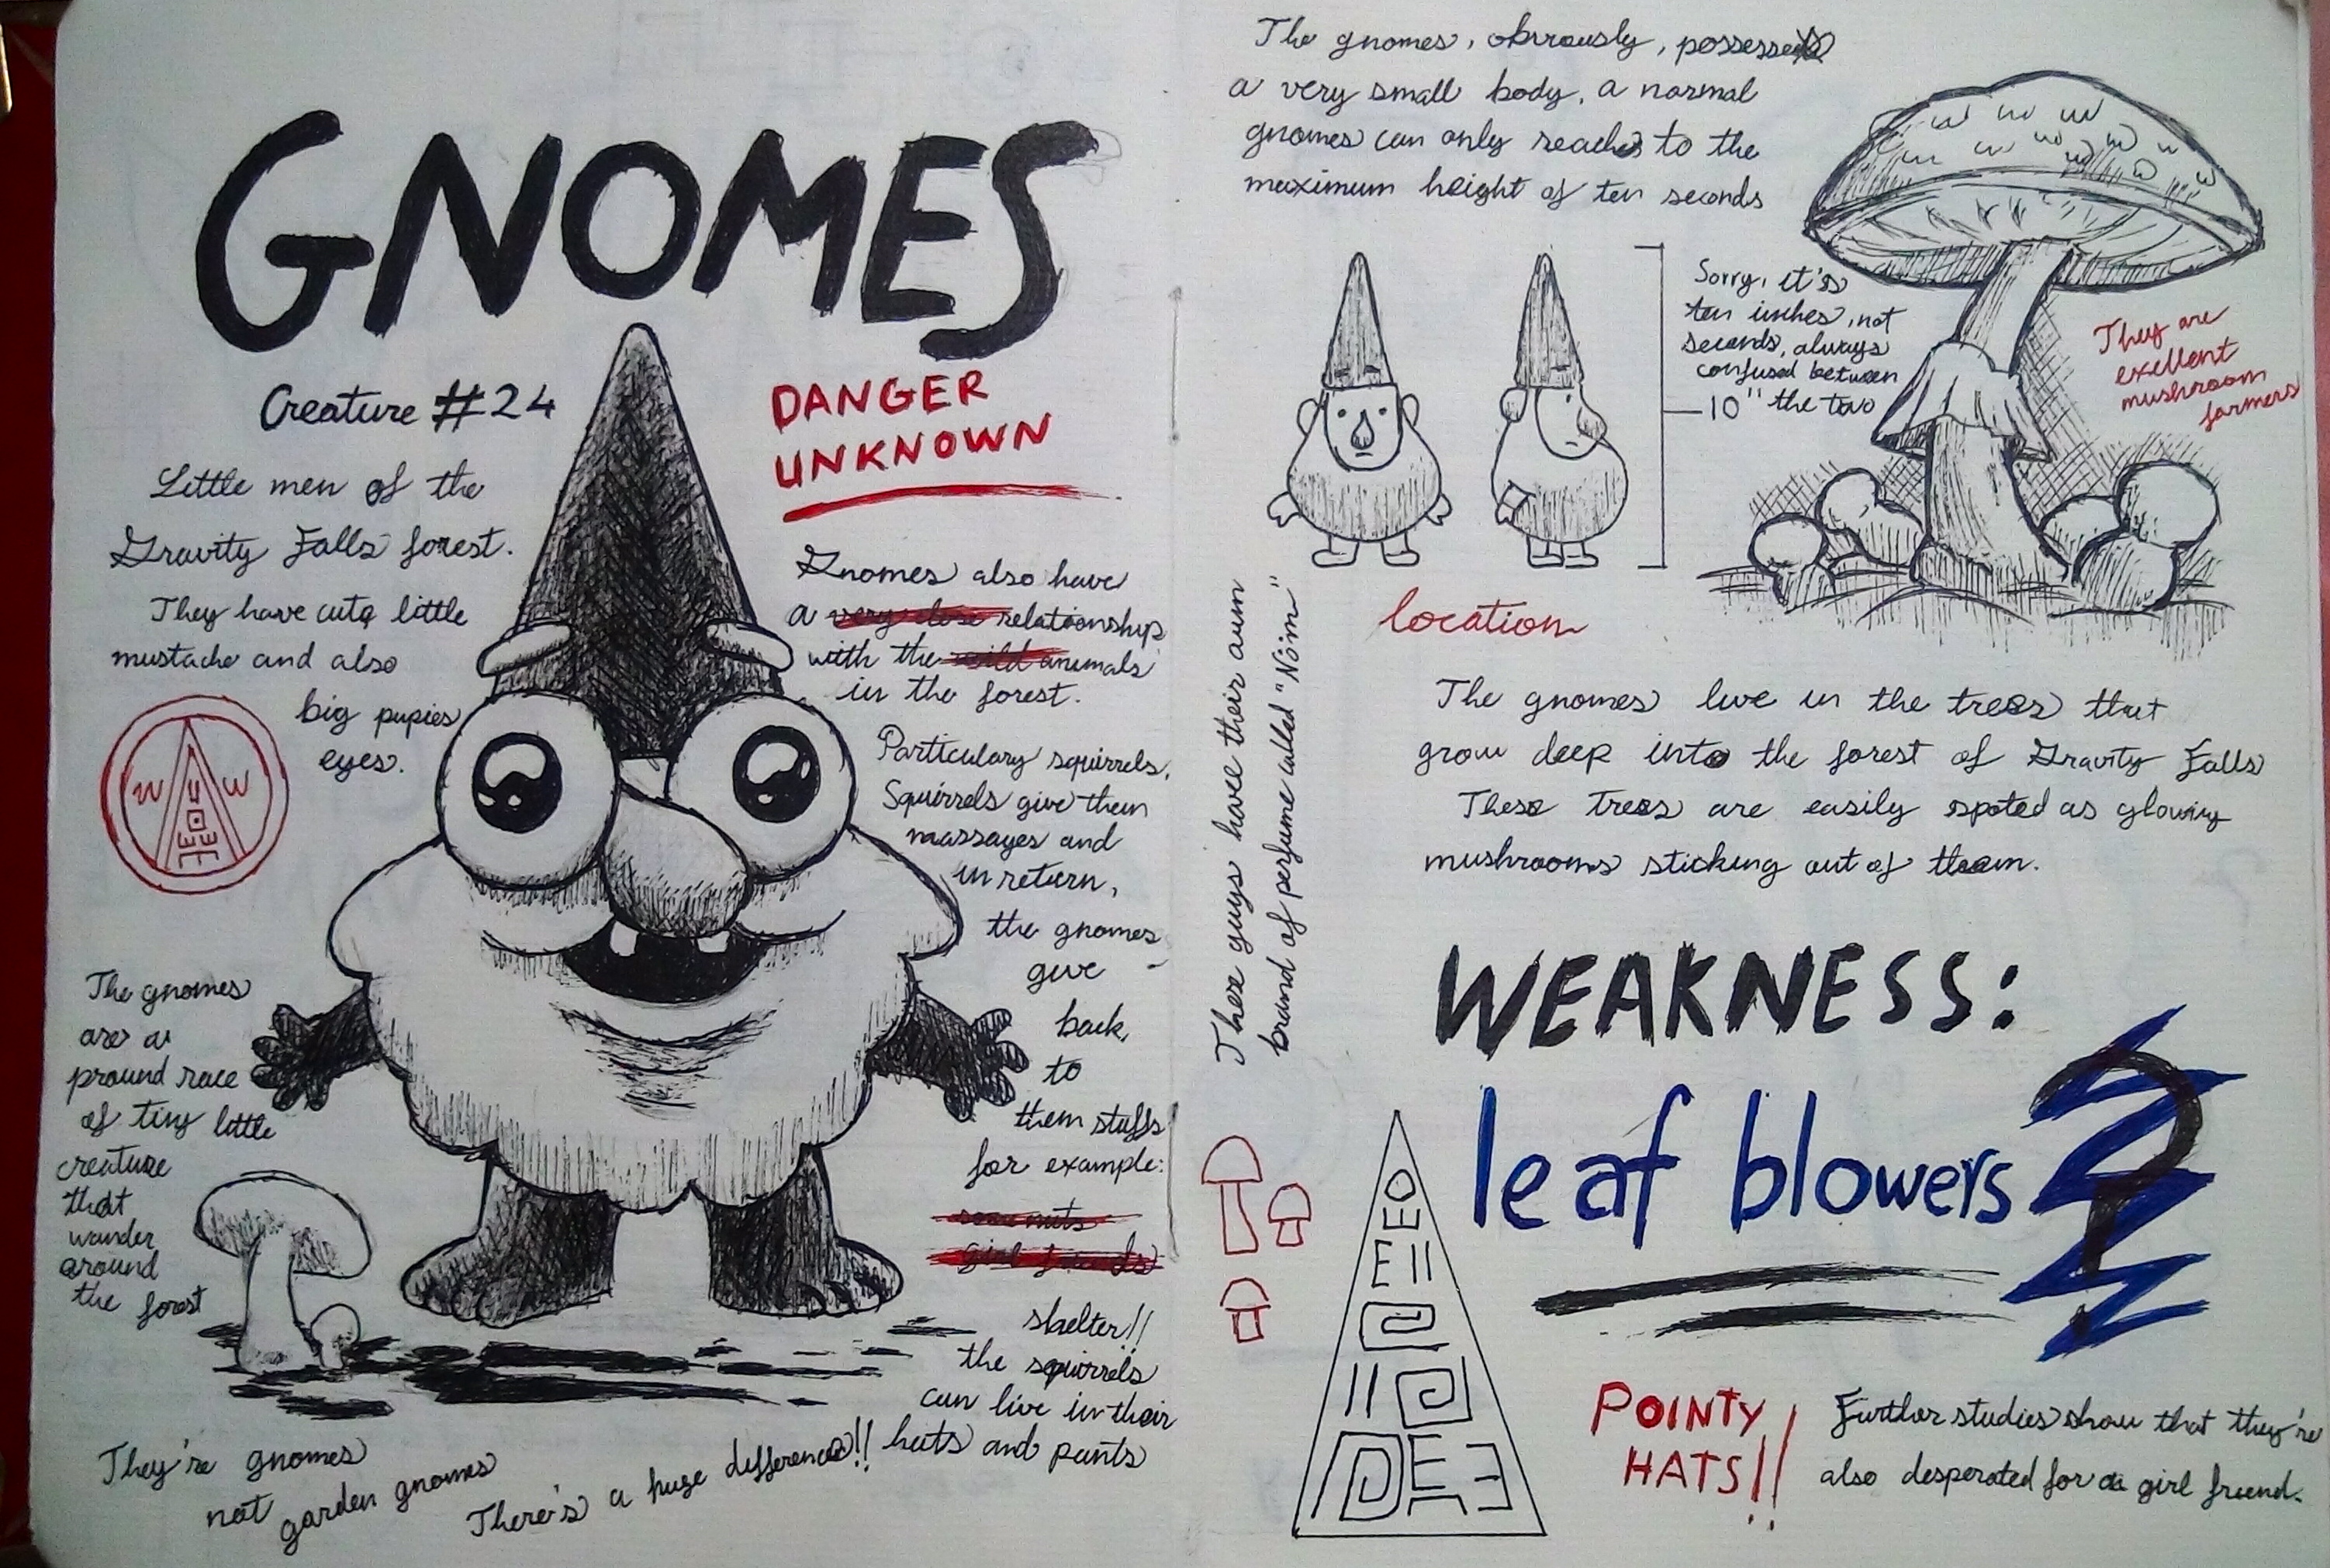 GNOMES
Creature #24
DANGER
UNKNOWN
Little men of the
Gravity Falls forest.
They have cute little
mustache and also
big pupies
eyes.
W W
The gnomes
are a
pround race
of tiny little
creature
that
wander
around
the forest
Gnomes also have
a very close relationship
with the wild animals
in the forest.
Particulary squirrels.
Squirrels give them
massages and
in return,
the gnomes
give
back,
to
them stuffs
for example:
some nuts
girl friends
shelter!!
the squirrels
can live in their
hats and pants
They're gnomes
not garden gnomes
There's a huge difference!!
The gnomes, obviously, possess
a very small body, a normal
gnomes can only reaches to the
maximum height of ten seconds
Sorry, it's
ten inches, not
seconds, always
confused between
10" the two
They are
exellent
mushroom
farmers
location
These guys have their own
brand of perfume called "Nöm"
The gnomes live in the trees that
grow deep into the forest of Gravity Falls
These trees are easily spoted as glowing
mushrooms sticking out of them.
WEAKNESS:
leaf blowers
?
POINTY
HATS!!
Further studies show that they're
also desperated for a girl friend.